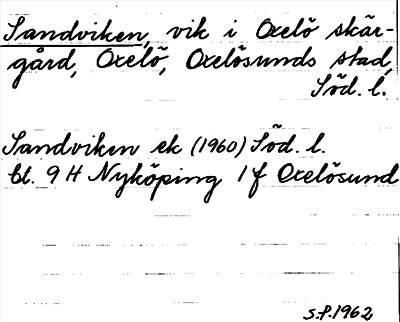 Sandviken, vik i Oxelö skär-
gård, Oxelö, Oxelösunds stad,
Söd. l.
Sandviken ek (1960) Söd. l.
bl. 9 H Nyköping 1 f Oxelösund
S.P. 1962